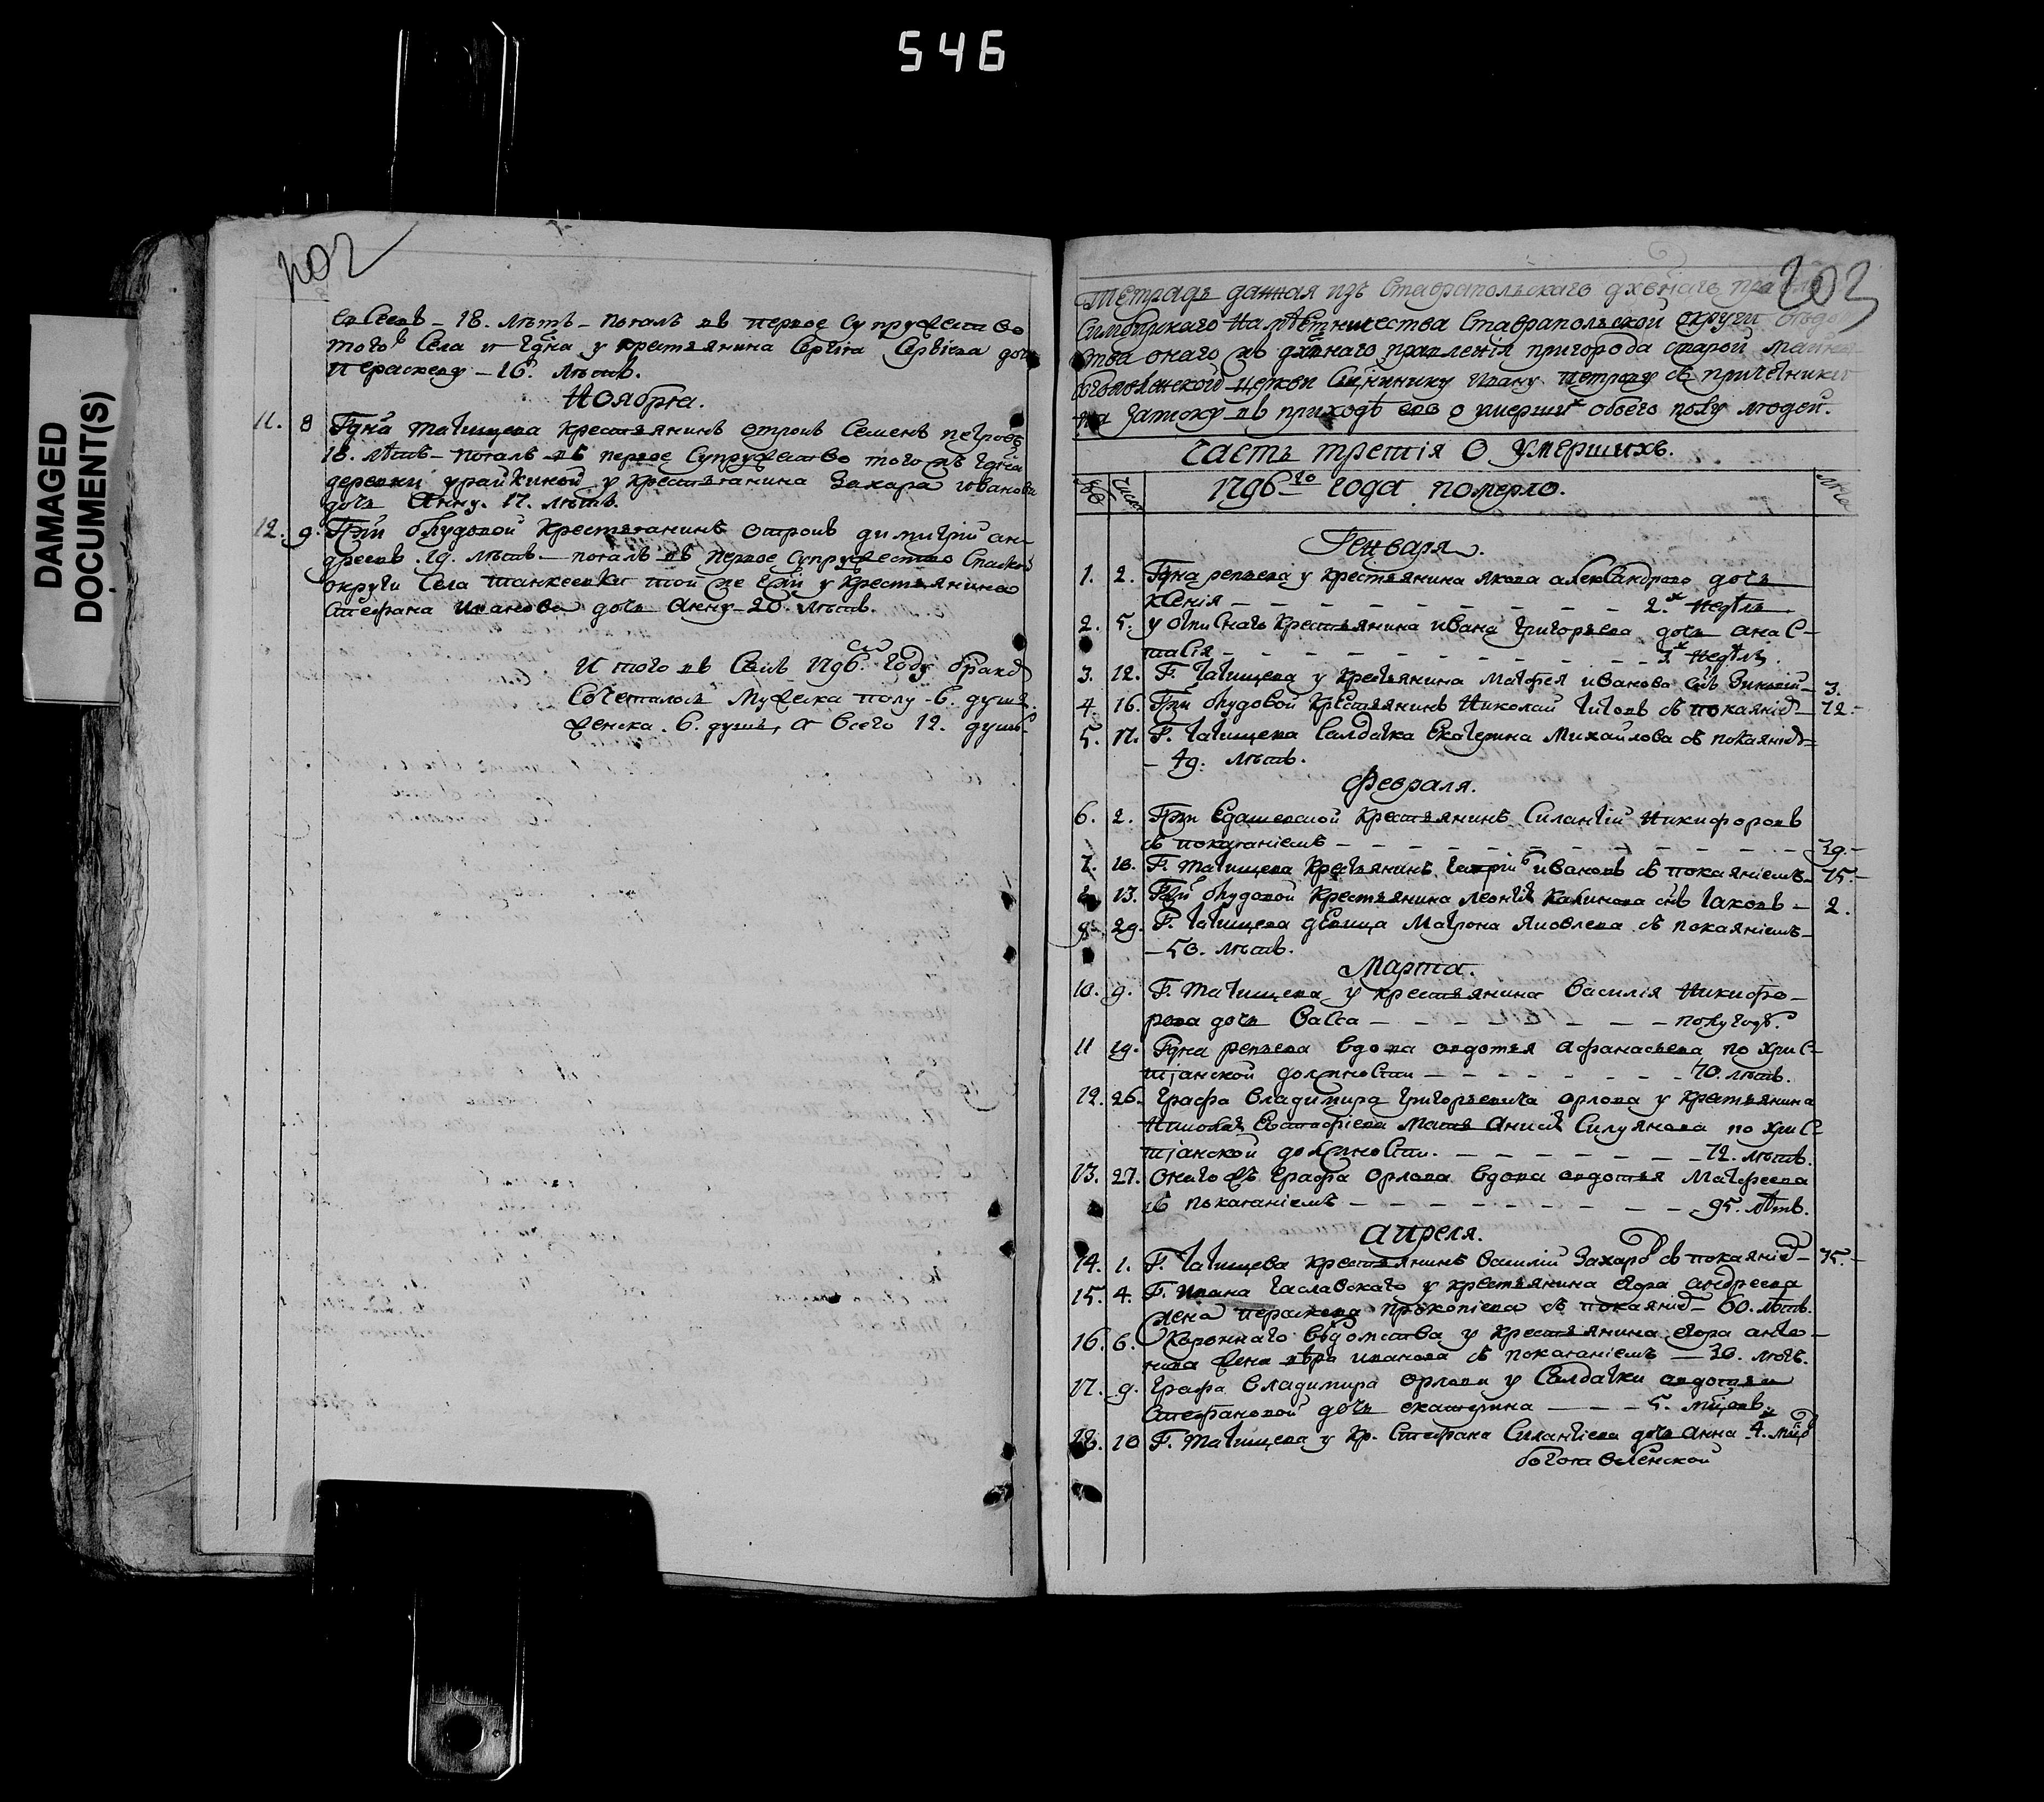 546
DAMAGED
DOCUMENT(S)
202
18. лѣтъ – поялъ въ первое супружество
того села и гдна у крестьянина Сергѣя Сергѣева дочь
Параскеву – 16. лѣтъ.
Ноября.
11. 8 Гдна Татищева крестьянинъ отрокъ Семенъ Петровъ
18. лѣтъ – поялъ въ первое супружество того жъ гдна
деревни Урайкиной у крестьянина Захара Иванова
дочь Анну. 17. лѣтъ.
12. 9. Гжи Обудовой крестьянинъ отрокъ Димитрій Ан-
дреевъ. 19. лѣтъ – поялъ въ первое супружество Спаской
округи села Танкеевки той же гжи у крестьянина
Стефана Иванова дочь Анну – 20. лѣтъ.
И того въ семъ 1796. году бракѡ
сочеталось мужеска полу – 6. душъ.
женска. 6. душъ, а всего 12. душъ.
203
Тетрадь данная изъ Ставрапольскаго дхвнаго
Симбирскаго намѣстничества Ставрапольской округи
ства онаго жъ дхвнаго правленія пригорода Старой Майны
Богоявленской церкви сщнннику Ивану Петрову съ причетники
на записку въ приходѣ его о умершихъ обоего полу людей.
Часть третія о умершихъ.
1796го года померло.
Генваря.
1. 2. Гдна Репьева у крестьянина Якова Александрова дочь
Ксенія – – – 2.х недѣль
2. 5. у описнаго крестьянина Ивана Григорьева дочь Анас-
тасія – – – 3х недѣль.
3. 12. Г. Татищева у крестьянина Матфея Иванова снъ – 3.
4. 16. Гжи Обудовой крестьянинъ Николай Титовъ съ покаяніе – 72. –
5. 17. Г. Татищева салдатка Екатерина Михайлова съ покаяніе –
– 49. лѣтъ.
Февраля.
6. 2. Гжи крестьянинъ Силантій Никифоровъ
съ покаяніемъ – – – 39. –
7. 10. Г. Татищева крестьянинъ Ивановъ съ покаяніемъ – 75. –
8 13. Гжи Обудовой крестьянина Леонтія Калинова снъ Іаковъ – 2.
9 29. Г. Татищева дѣвица Матрона Яковлева съ покаяніемъ –
– 50. лѣтъ.
Марта.
10. 9. Г. Татищева у крестьянина Василія Никифо-
рова дочь Васса – – – полугоду.
11 19. Гдна Репьева вдова Авдотья Афанасьева по хрис-
тіанской должности – – – 70. лѣтъ.
12. 26. Графа Владимира Григорьевича Орлова у крестьянина
Николая Евстафіева мать Анисія Силуянова по хрис-
тіанской должности. – – – 72. лѣтъ.
13. 27. Онаго жъ графа Орлова вдова Авдотья Матфеева
съ покаяніемъ – – – 95. лѣтъ.
Апреля.
14. 1. Г. Татищева крестьянинъ Василій Захаровъ съ покаяніе – 75. –
15. 4. Г. Ивана у крестьянина Егора Андреева
жена Параскева Прокопіева съ покаяніе – 60. лѣтъ.
16. 6. Короннаго вѣдомства у крестьянина Егора Анто-
нова жена Вѣра Иванова съ покаяніемъ – 30. лѣтъ.
17. 9. Графа Владимира Орлова у салдатки Авдотьи
Стефановой дочь Екатерина – – – 5. мцовъ.
18. 10 Г. Татищева у кр. Стефана Силантіева дочь Анна 4.х мцов
Богоявленской